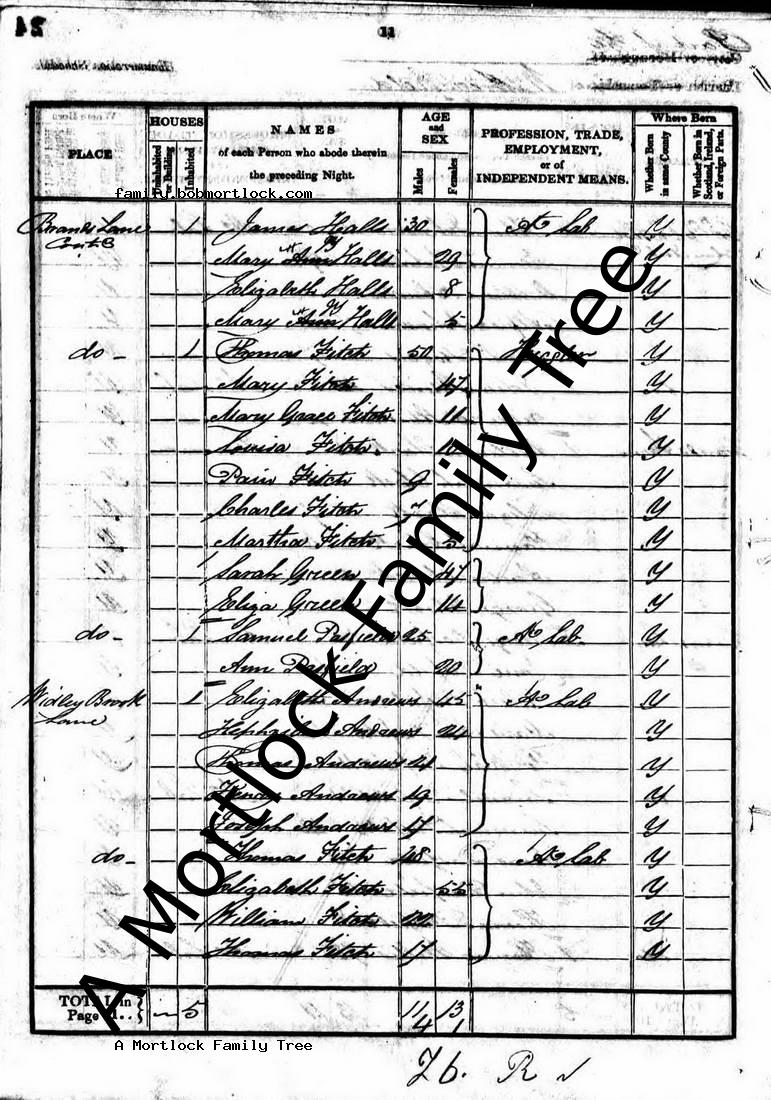 24
11
PLACE
HOUSES
Uninhabited or Building
Inhabited
NAMES
of each Person who abode therein
the preceding Night.
AGE
and
SEX
Males
Females
PROFESSION, TRADE,
EMPLOYMENT,
or of
INDEPENDENT MEANS.
Where Born
Whether Born in same County
Whether Born in Scotland, Ireland, or Foreign Parts.
family.bobmortlock.com
1 James Halls 30 Ag Lab Y
Mary Ann Halls 29 Y
Elizabeth Halls 8 Y
Mary Ann Halls 5 Y
do 1 Thomas Fitch 50 Y
Mary Fitch 47 Y
Mary Grace Fitch 11 Y
Louisa Fitch 10 Y
Pain Fitch 9 Y
Charles Fitch 7 Y
Martha Fitch 5 Y
Sarah Green 47 Y
Eliza Green 14 Y
do 1 Samuel Pasfield 25 Ag Lab Y
Ann Pasfield 20 Y
Widley Brook Lane 1 Elizabeth Andrews 45 Ag Lab Y
Andrews 24 Y
Thomas Andrews 21 Y
Henry Andrews 19 Y
Joseph Andrews 17 Y
do Thomas Fitch 48 Ag Lab Y
Elizabeth Fitch 55 Y
William Fitch 20 Y
Thomas Fitch 17 Y
TOTAL in Page 11 5 11 13
4 1
A Mortlock Family Tree
A Mortlock Family Tree
26. R √